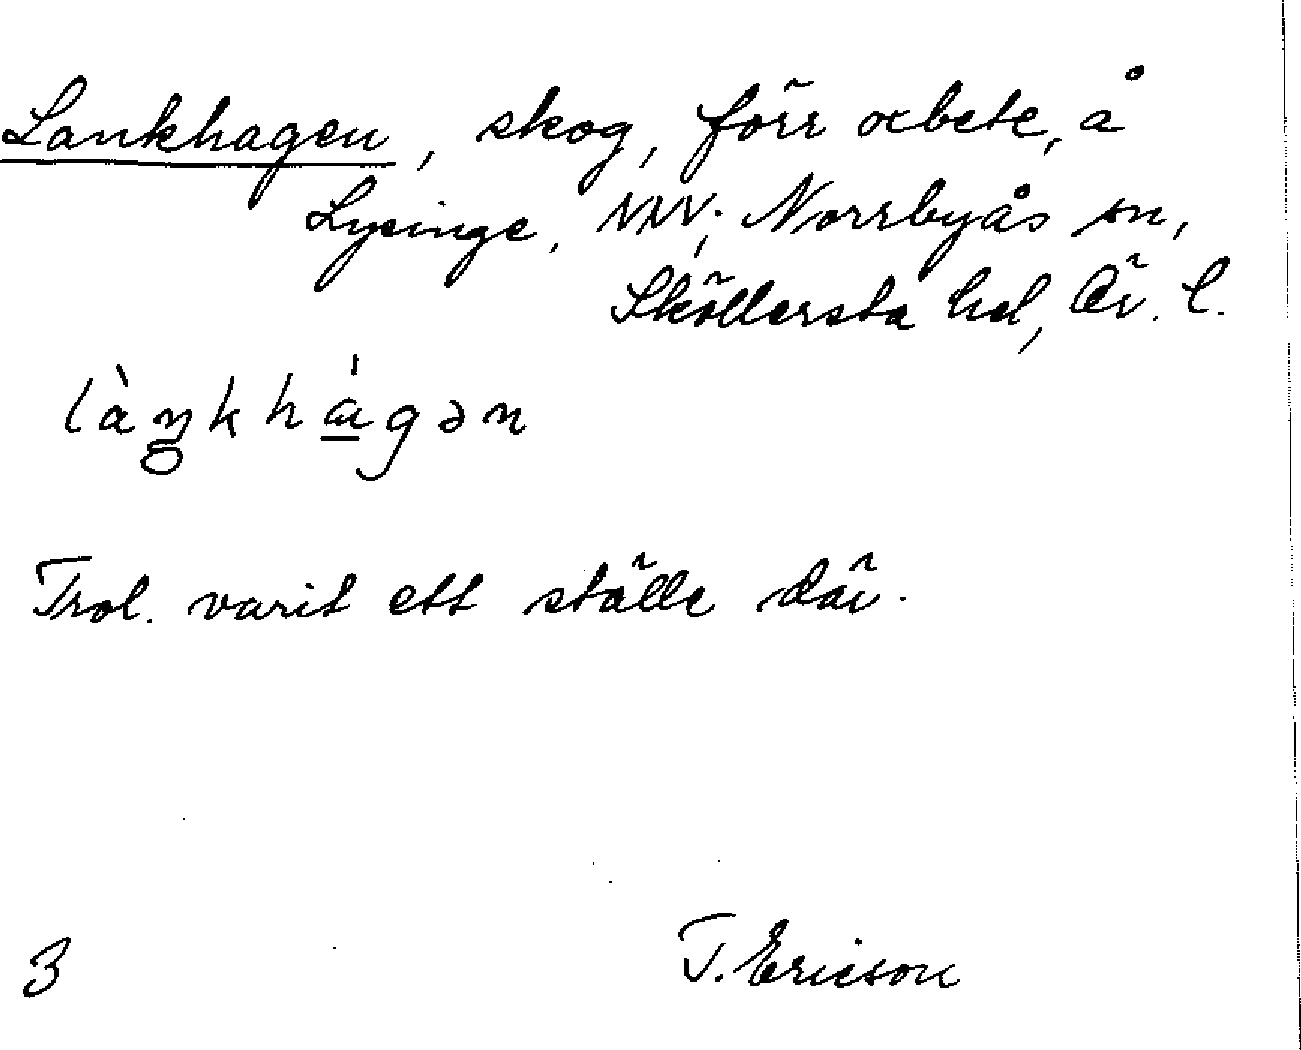 Lankhagen, skog, förr utbete, å
Lysinge, NV; Norrbyås sn,
Sköllersta hd, Ör. l.
làŋkhágən
Trol. varit ett ställe där.
3 T. Ericson